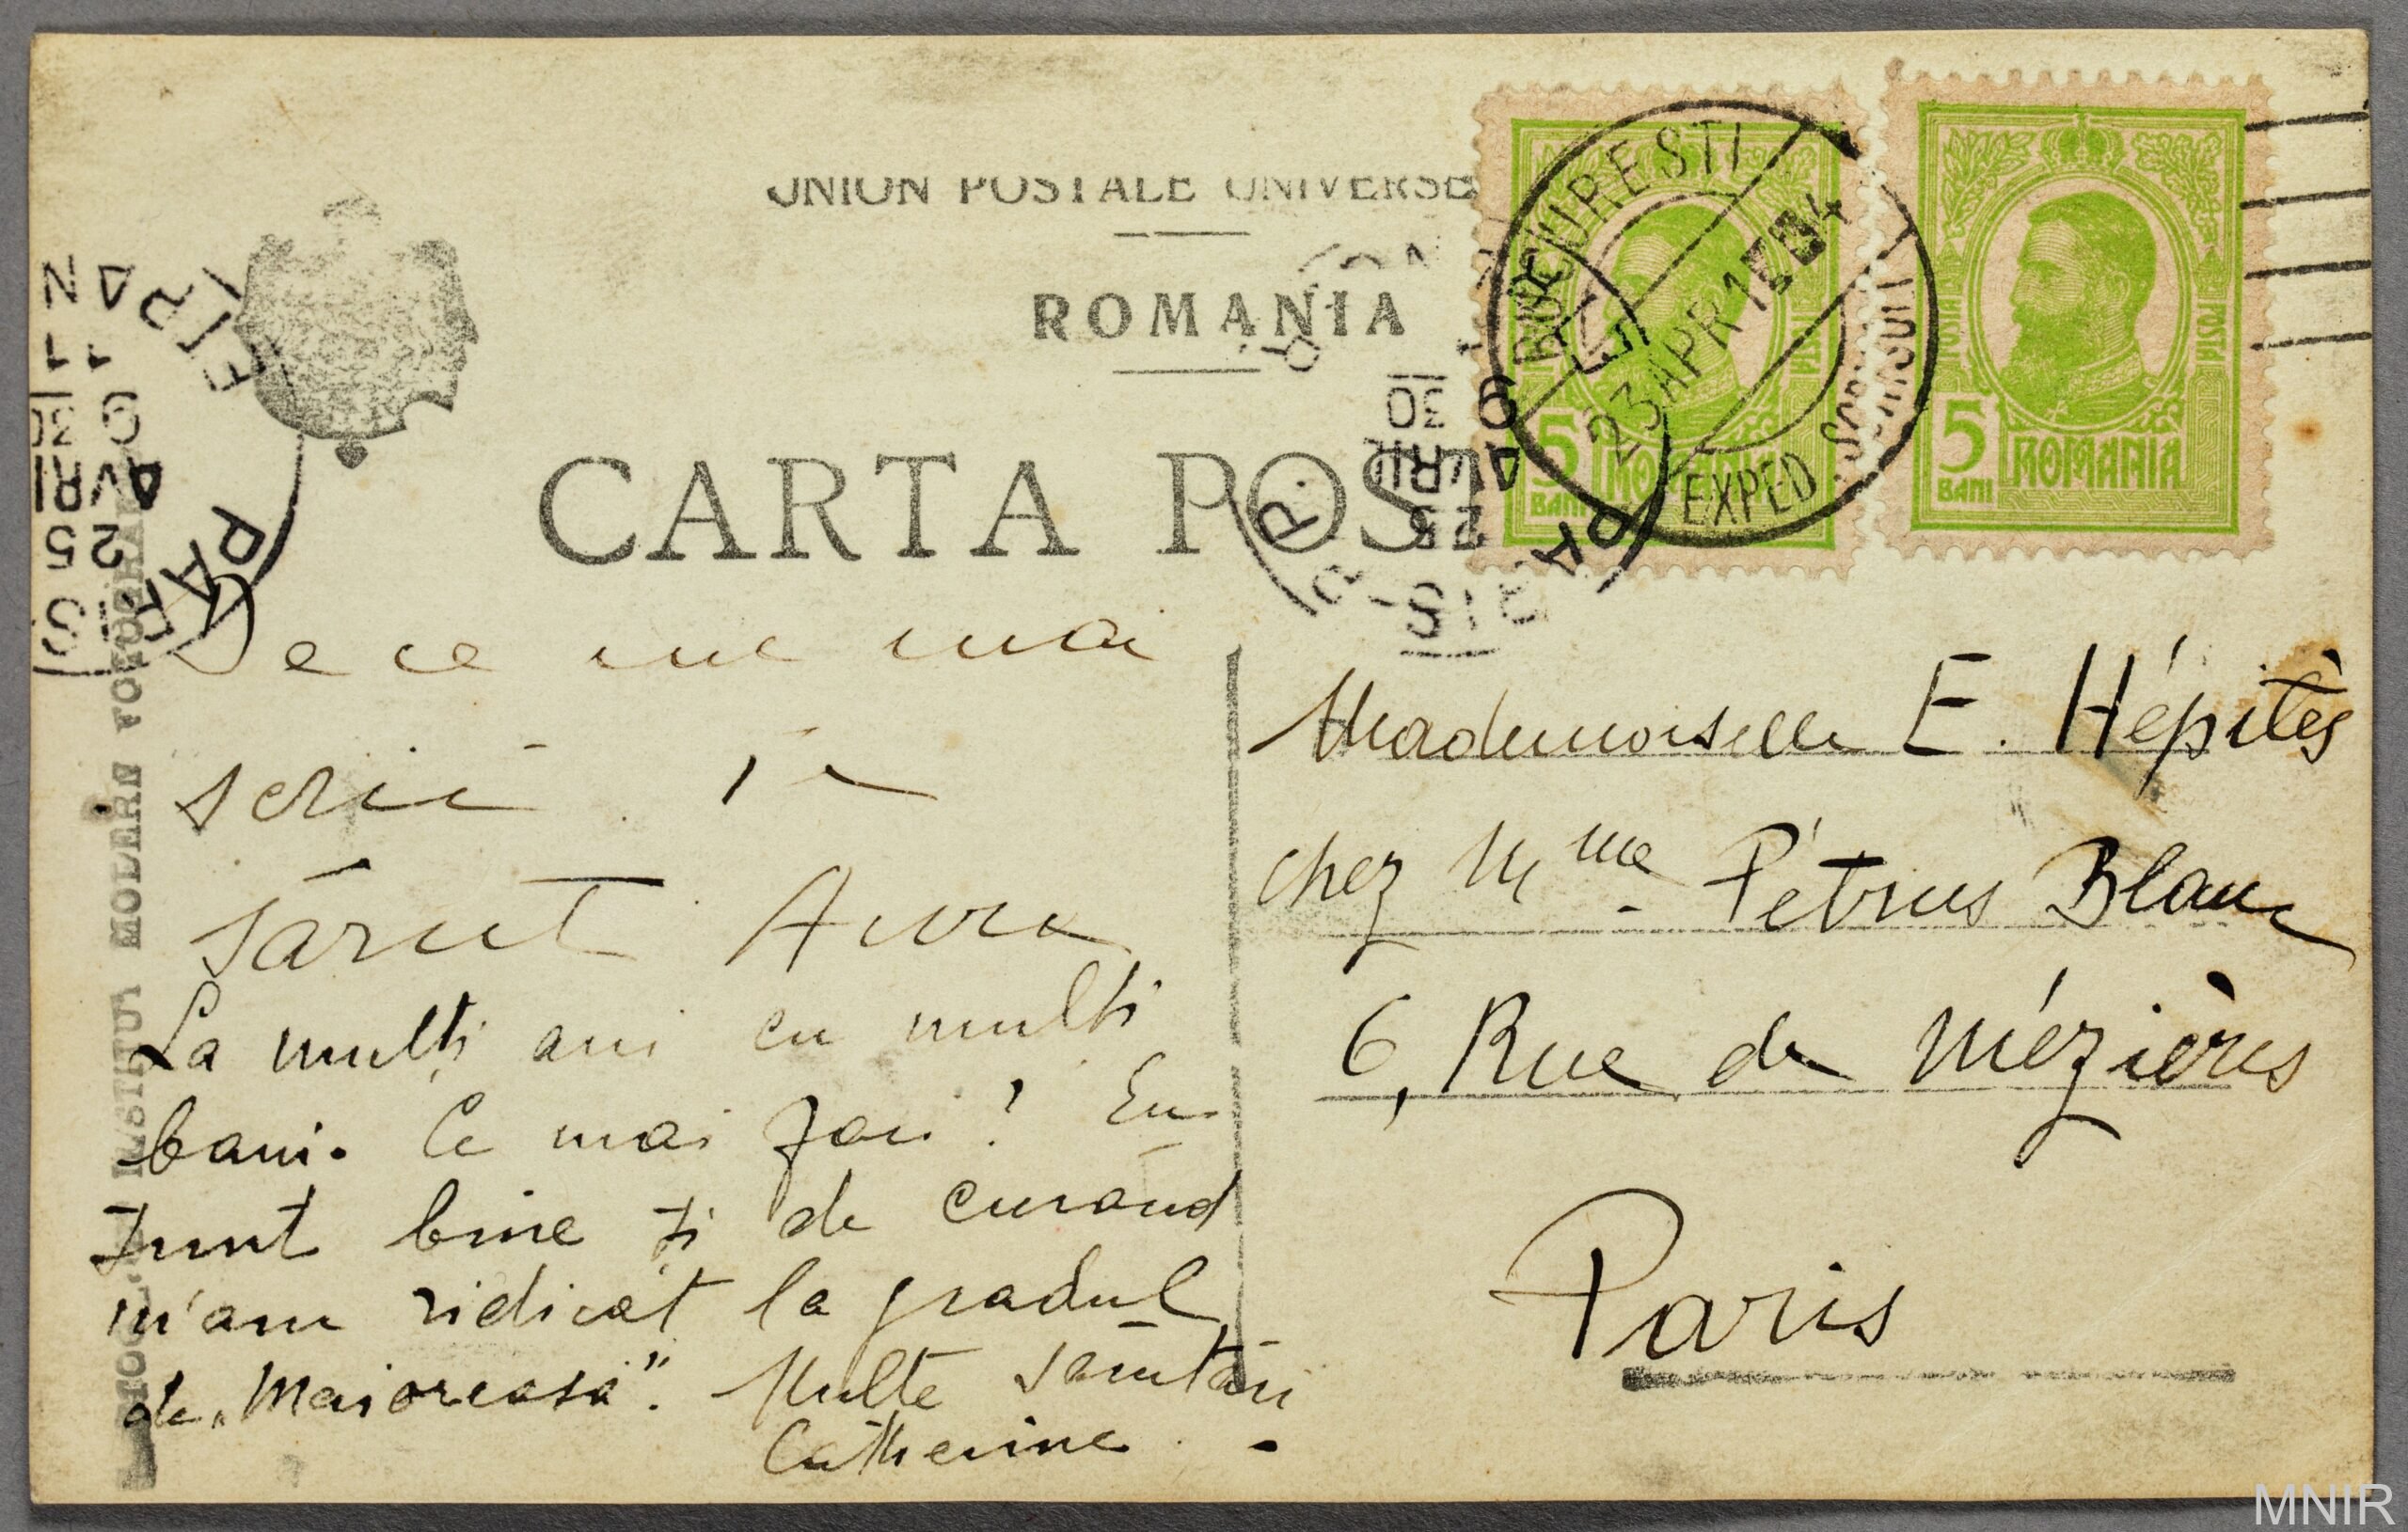 UNION POSTALE UNIVERSE
ROMANIA
CARTA POST
BUCURESTI
23 APR 1
EXPED
POSTA
POSTA
5
BANI
ROMANIA
5
BANI
ROMANIA
PARIS
25
AVRIL
9 30
PAR
25
AVRI
9 30
MODERN
De ce nu mai
scrii. Te
sărut Aura
La mulți ani cu mulți
bani. Ce mai faci? Eu
sunt bine și de curând
m'am ridicat la gradul
de „Maioreasă". Multe sărutări
Catherine.
Mademoiselle E. Hépitès
chez Mme Pétrus Blanc
6, Rue de Mézières
Paris
MNIR